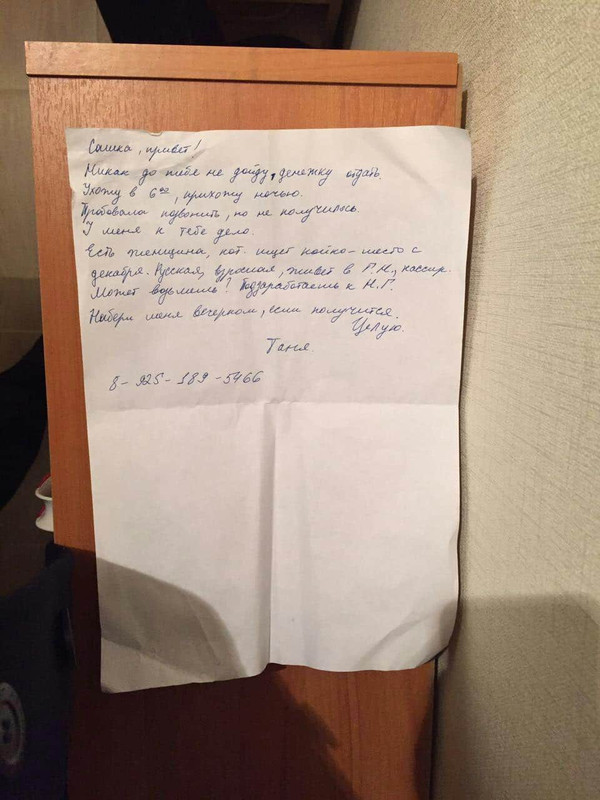 Сашка, привет!
Никак до тебя не дойду, денежку отдать.
Ухожу в 6⁰⁰, прихожу ночью.
Пробовала позвонить, но не получилось.
У меня к тебе дело.
Есть женщина, кот. ищет койко-место с
декабря. Русская, взрослая, живет в Р.М., кассир.
Может возьмешь? Подзаработаешь к Н.Г.
Набери меня вечерком, если получится.
Целую.
Таня.
8-925-189-5466